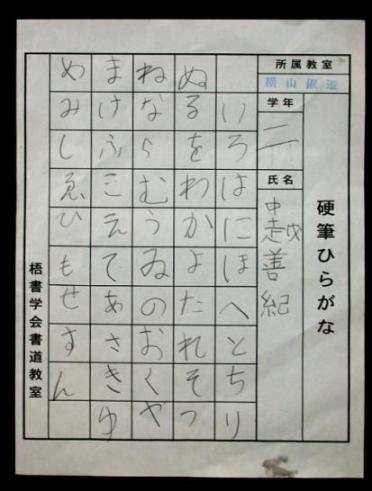 硬筆ひらがな
所属教室
横山
学年
二
氏名
中越善紀
いろはにほへとちり
ぬるをわかよたれそつ
ねならむうゐのおくや
まけふこえてあさきゆ
めみしゑひもせすん
梧書学会書道教室